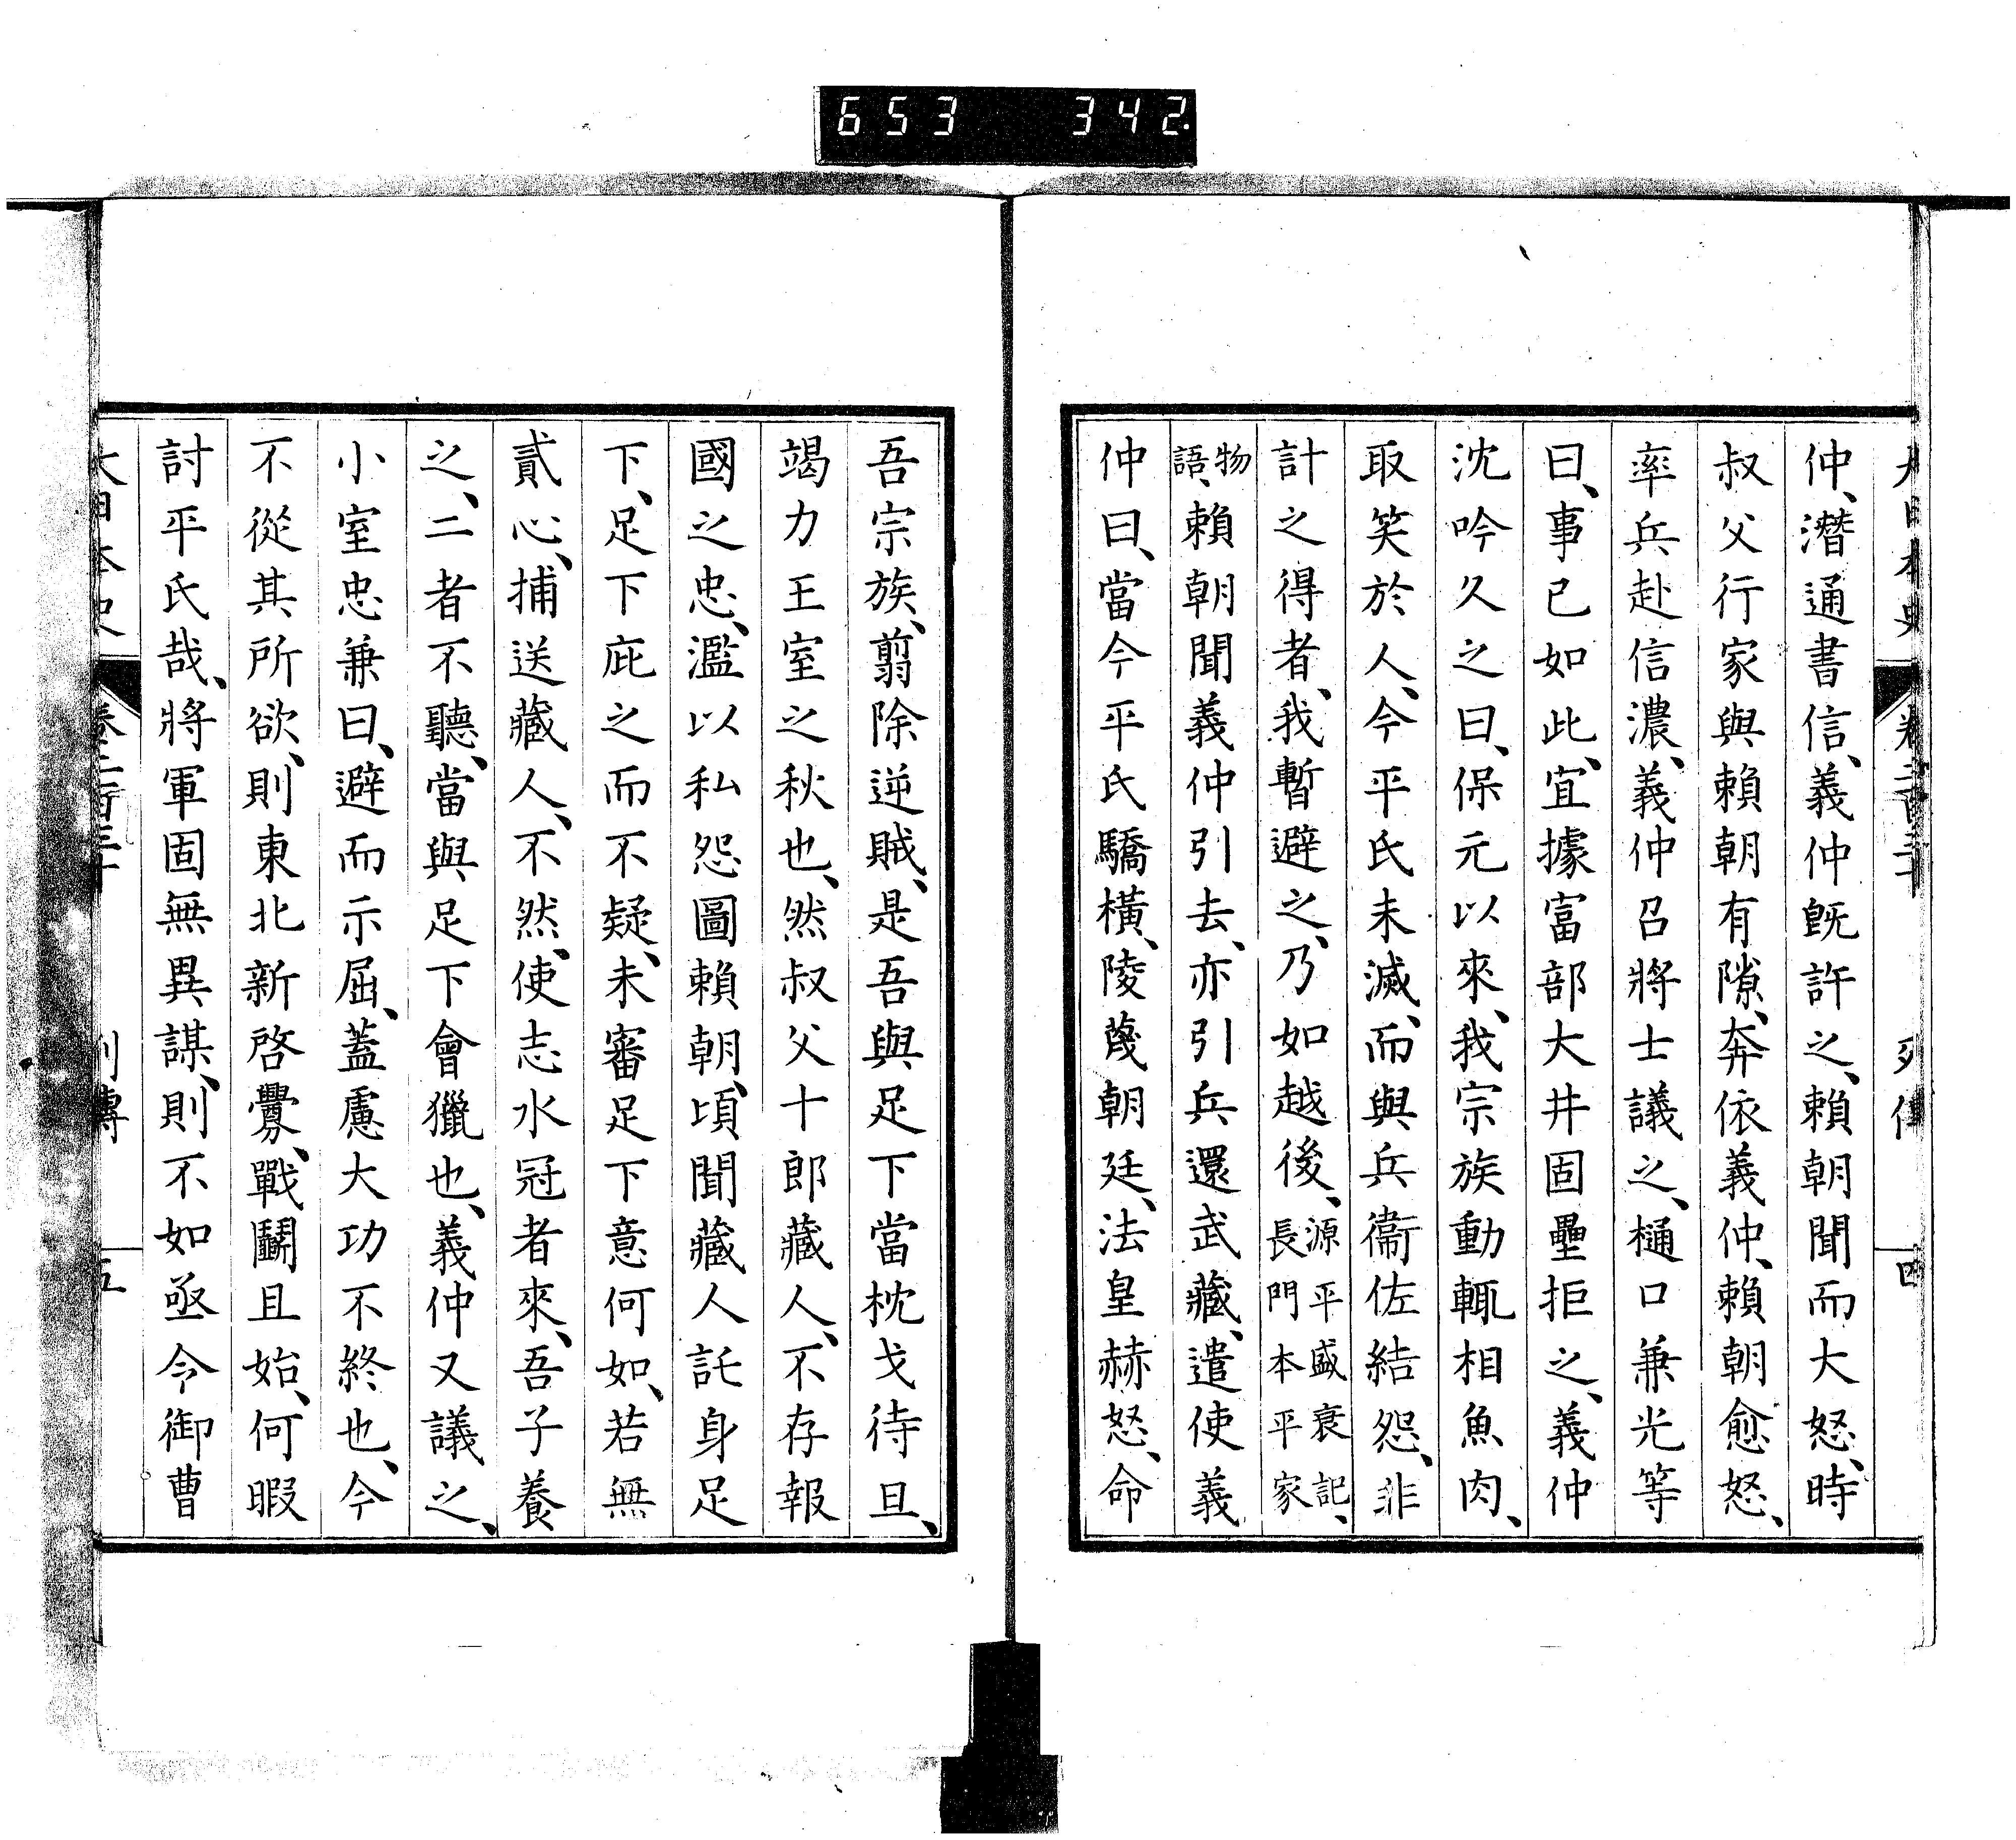 653 342
大日本史 卷二百三十 列傳 四
仲、潛通書信、義仲旣許之、賴朝聞而大怒、時
叔父行家與賴朝有隙、奔依義仲、賴朝愈怒、
率兵赴信濃、義仲召將士議之、樋口兼光等
曰、事已如此、宜據富部大井固壘拒之、義仲
沈吟久之曰、保元以來、我宗族動輒相魚肉、
取笑於人、今平氏未滅、而與兵衞佐結怨、非
計之得者、我暫避之、乃如越後、源平盛衰記、長門本平家
物語、賴朝聞義仲引去、亦引兵還武藏、遣使義
仲曰、當今平氏驕橫、陵蔑朝廷、法皇赫怒、命
吾宗族、翦除逆賊、是吾與足下當枕戈待旦、
竭力王室之秋也、然叔父十郎藏人、不存報
國之忠、濫以私怨圖賴朝、頃聞藏人託身足
下、足下庇之而不疑、未審足下意何如、若無
貳心、捕送藏人、不然、使志水冠者來、吾子養
之、二者不聽、當與足下會獵也、義仲又議之、
小室忠兼曰、避而示屈、蓋慮大功不終也、今
不從其所欲、則東北新啓釁、戰鬭且始、何暇
討平氏哉、將軍固無異謀、則不如亟令御曹
大日本史 卷二百三十 列傳 五